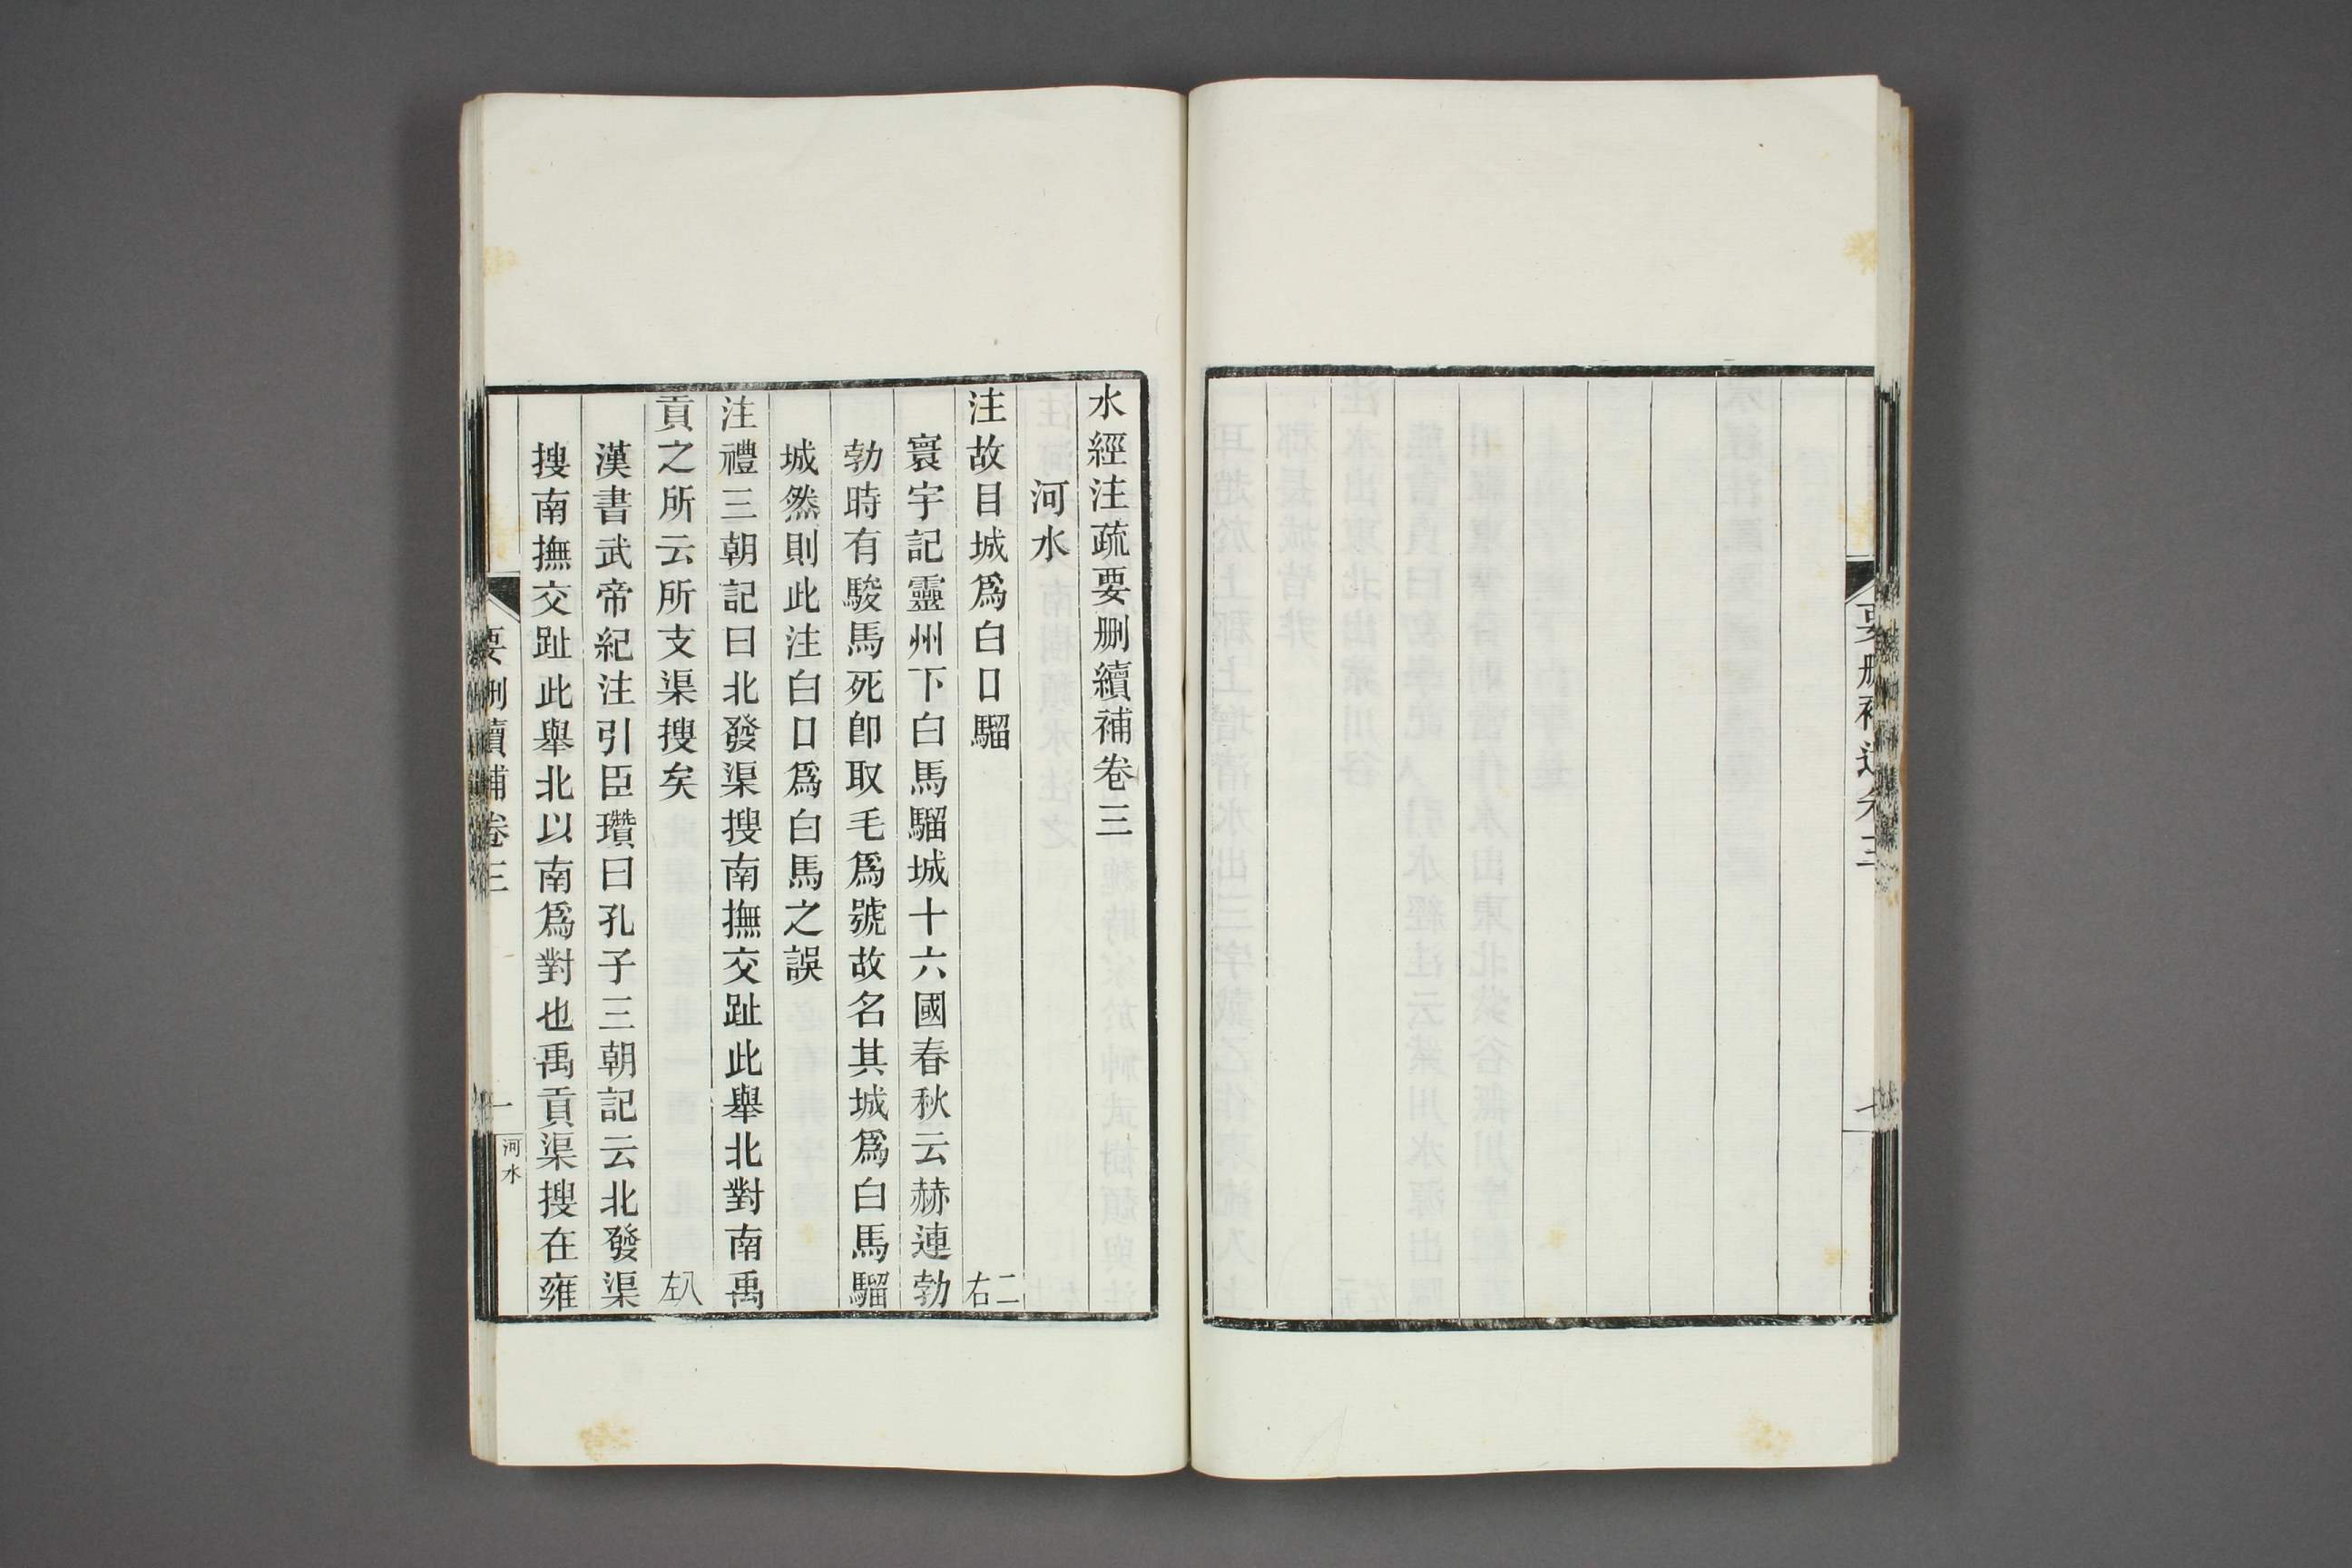 水經注疏要删續補卷三
河水
注故目城爲白口騮 二右
寰宇記靈州下白馬騮城十六國春秋云赫連勃
勃時有駿馬死卽取毛爲號故名其城爲白馬騮
城然則此注白口爲白馬之誤
注禮三朝記曰北發渠搜南撫交趾此舉北對南禹
貢之所云所支渠搜矣 八左
漢書武帝紀注引臣瓚曰孔子三朝記云北發渠
搜南撫交趾此舉北以南爲對也禹貢渠搜在雍
要删續補卷三 一 河水